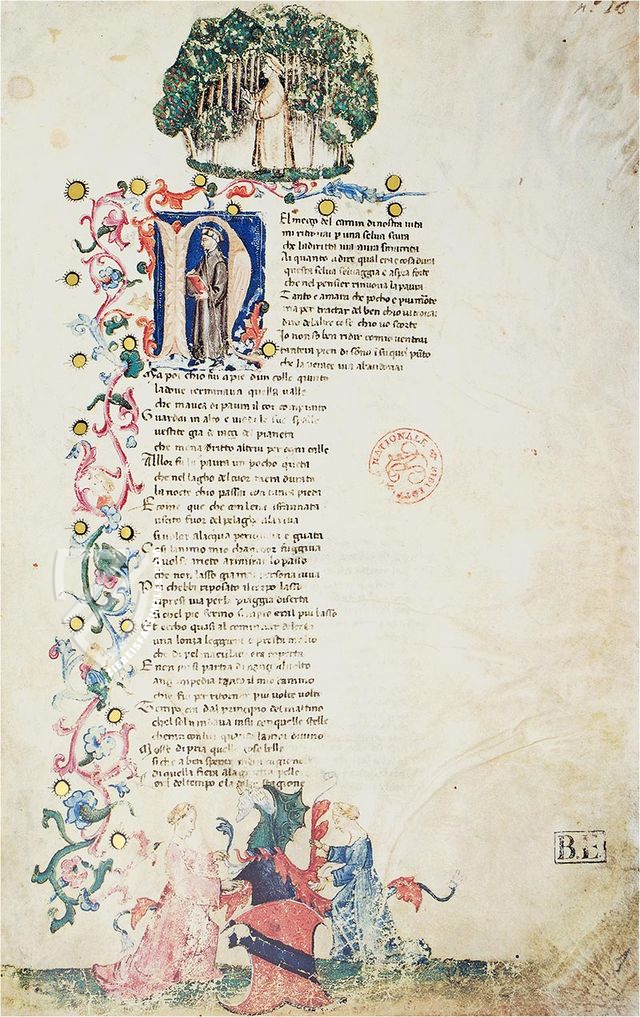 n.º 18
N
El mezo del camin di nostra uita
mi ritrouai p una selua scura
che la diritta uia
Ai quanto a dire qual era e cosa dura
questa selua seluaggia e aspra forte
che nel pensier rinuoua la paura
Tanto e amara che pocho e piu morte
ma per tractar del ben chio ui trouai
diro del altre cose chio uo scorte
Io non so ben ridir comio uentrai
tantera pien di sono i su quel
che la uerace uia
Ma poi chio fui a pie dun colle giunto
la doue terminaua quella ualle
che mauea di paura il cor
Guardai in alto e uidi le sue spalle
uestite gia di raggi del pianeta
che mena dritto altrui per ogni calle
Allor fu la paura un pocho queta
che nel lagho del cuor mera durata
la nocte chio passai con tanta pieta
E come que che con lena affannata
uscito fuor del pelagho ala riua
si uolge alacqua perigliosa e guata
Cosi lanimo mio chancor fuggiua
si uolse arieto a rimirar lo passo
che non lasso gia mai persona uiua
chebbi riposato il corpo lasso
ripresi uia per la piaggia diserta
si chel pie fermo sempre era il piu basso
Et eccho quasi al cominciar delerta
una lonza leggiera e presta molto
che di pel maculato era coperta
E non mi si partia dinanzi al uolto
anzi impedia tanto il mio camino
chio fui per ritornar piu uolte uolto
Tempo era dal principio del mattino
chel sol montaua insu con quelle stelle
cheran con lui quando lamor diuino
Mosse di pria quelle cose belle
si che a ben sperar mera cagione
di quella fiera ala gaetta pelle
lora del tempo e la dolce stagione
NATIONALE
B.E